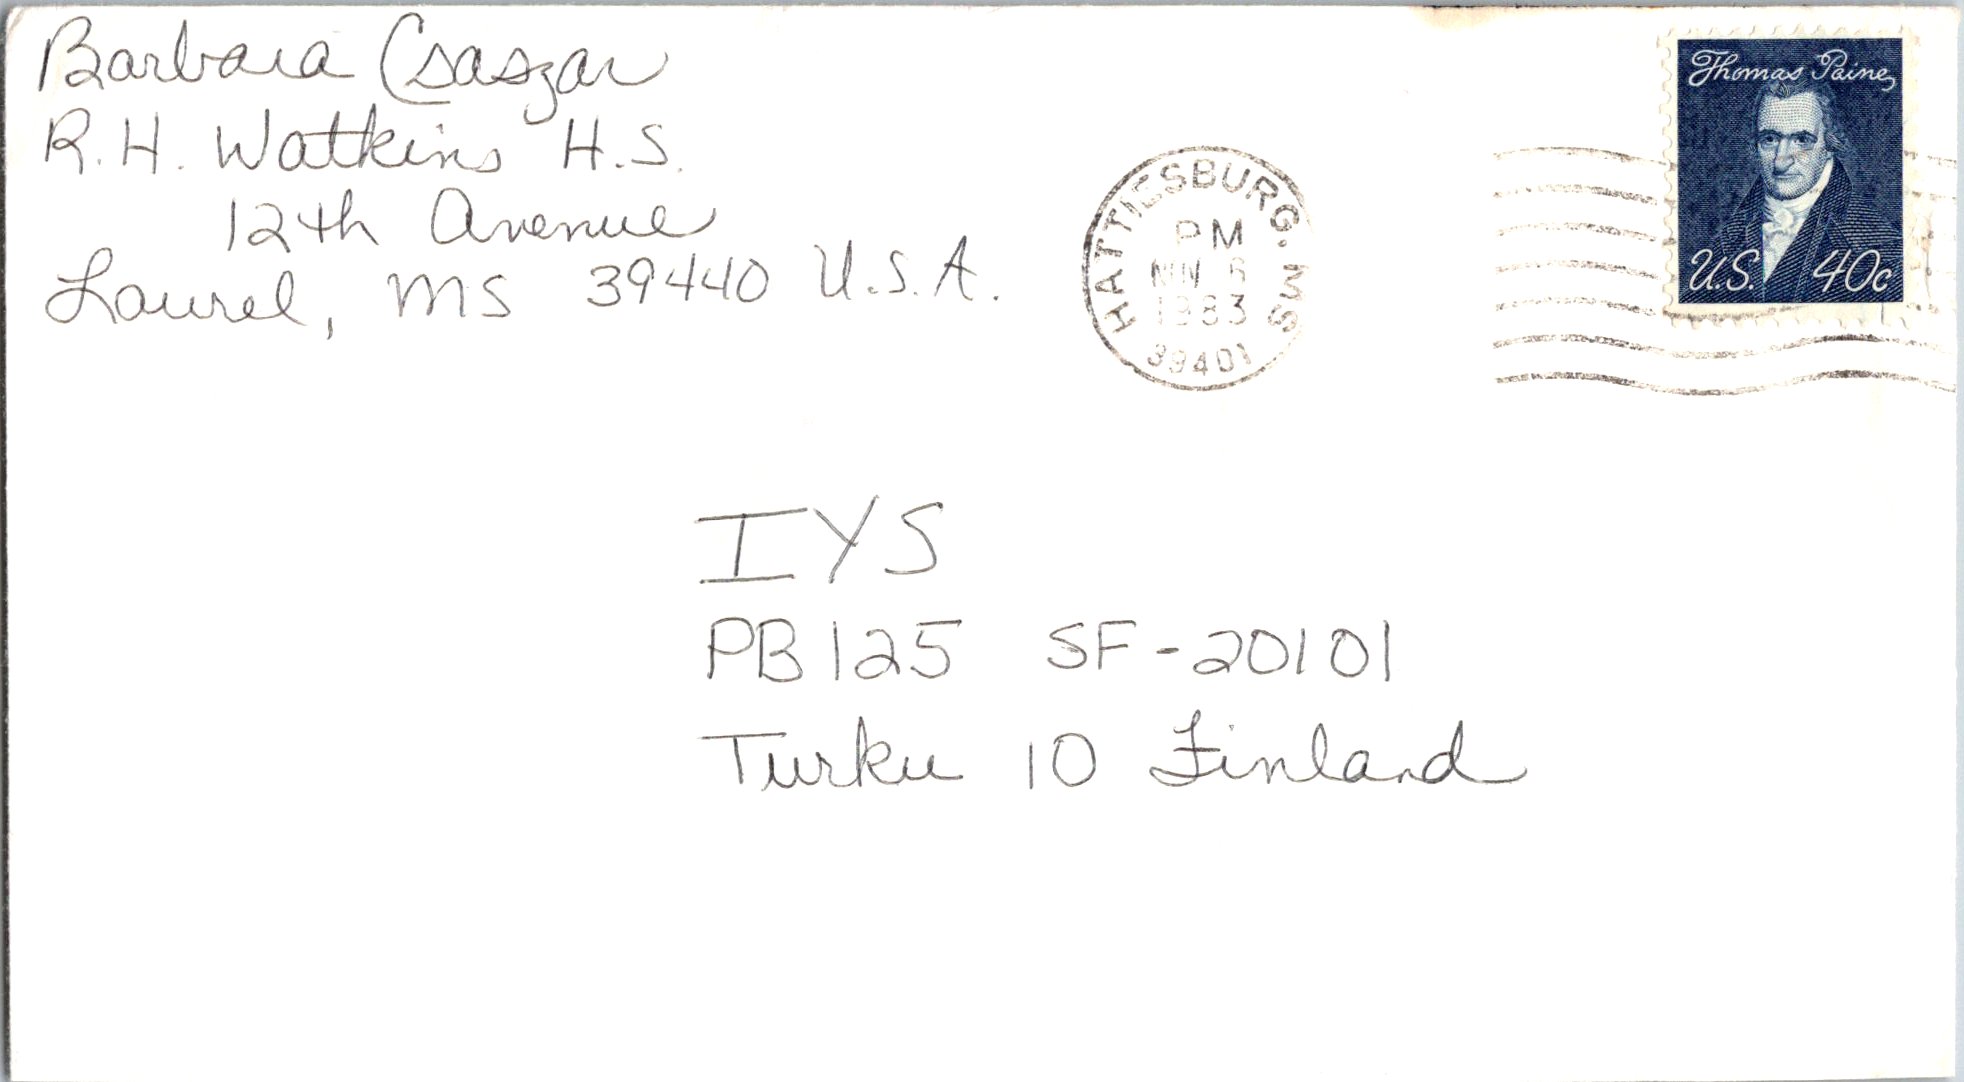 Barbara Csaszar
R.H. Watkins H.S.
12th Avenue
Laurel, MS 39440 U.S.A.
HATTIESBURG. MS
PM
6
1983
39401
Thomas Paine
U.S. 40c
IYS
PB 125 SF-20101
Turku 10 Finland